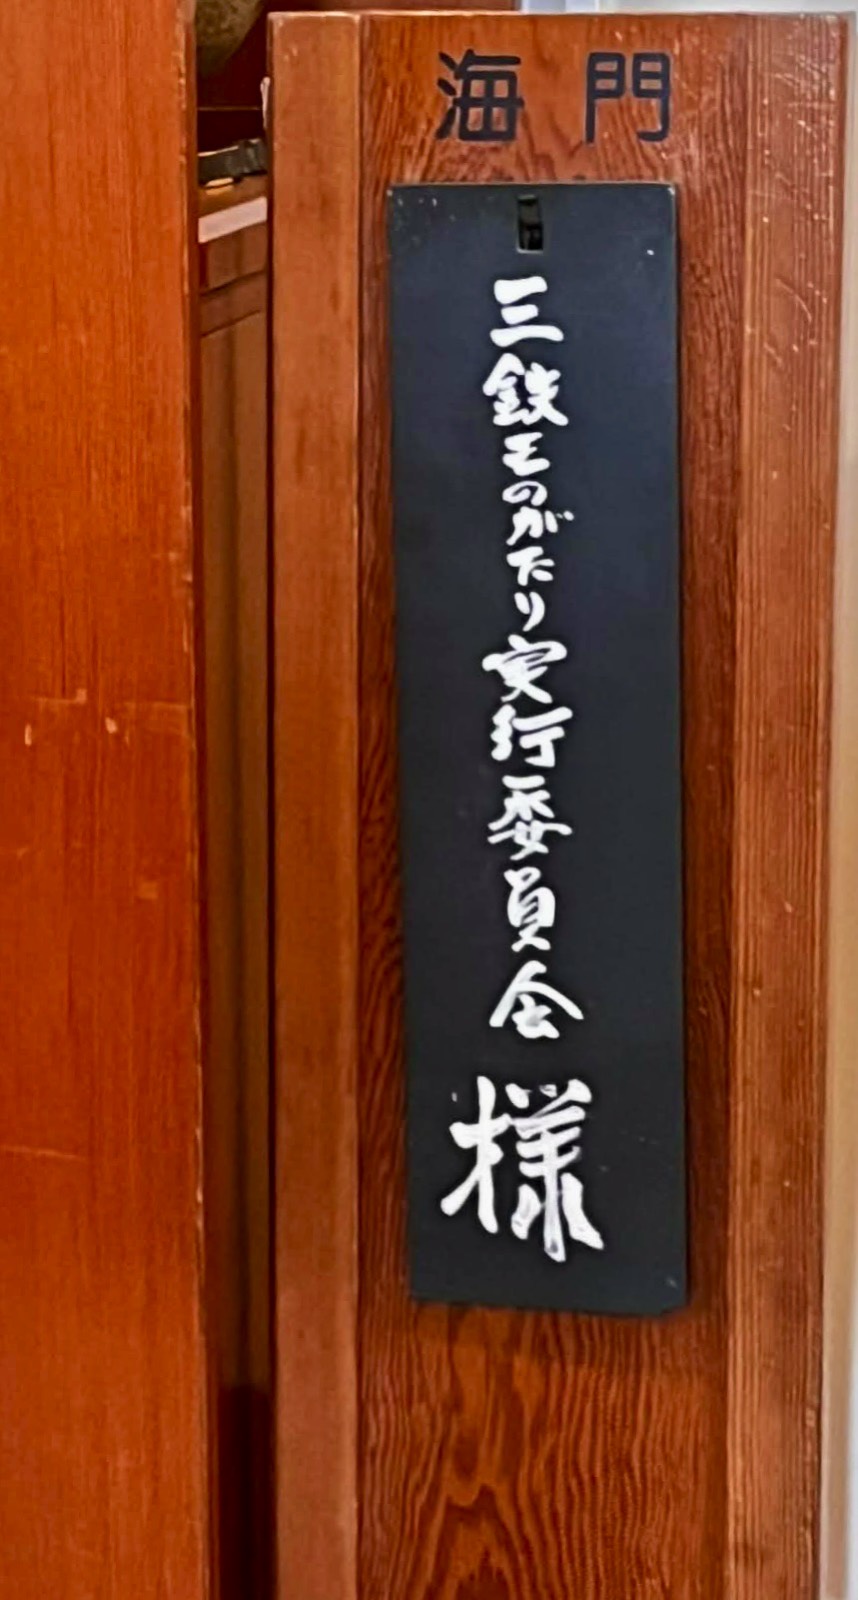 海門
三鉄ものがたり実行委員会
様